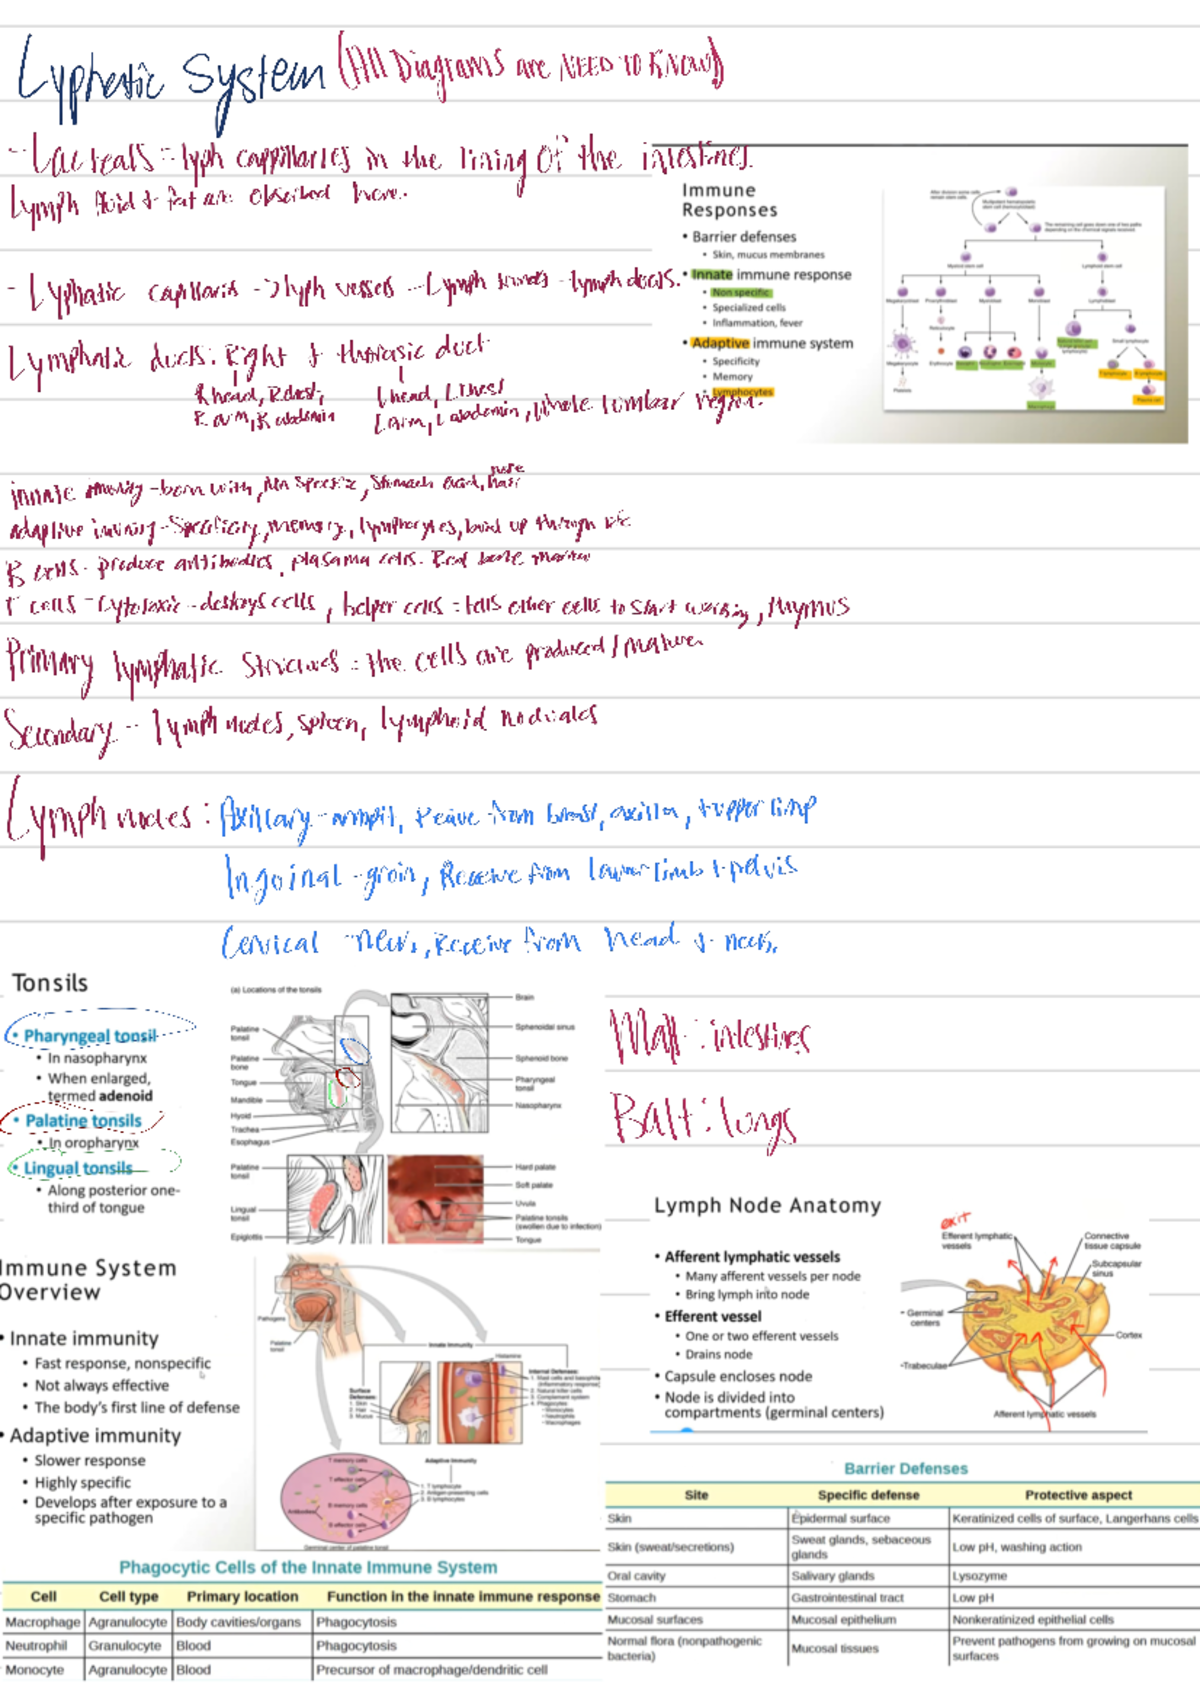 Lyphatic System (All Diagrams are NEED TO KNOW)
- Lacteals = lyph cappillaries in the lining of the intestines.
Lymph fluid + fat are obsorbed here.
- Lyphatic capillaris -> lyph vessels - Lymph trunks - lymph ducts.
Lymphatic ducts: Right + thorasic duct
R head, R chest, R arm, R abdomin
L head, L chest L arm, L abdomin, whole lumbar region.
Immune
Responses
• Barrier defenses
• Skin, mucus membranes
• Innate immune response
• Non specific
• Specialized cells
• Inflammation, fever
• Adaptive immune system
• Specificity
• Memory
• Lymphocytes
innate - born with, Non specific, Stomach acid,
adaptive - Specificity, memory, lymphocytes, build up through life
B cells - produce antibodies, plasama cells. Red bone marrow
T cells - Cytotoxic - destroys cells, helper cells = tells other cells to start working, thymus
Primary lymphatic Structures = the cells are produced/mature
Secondary - lymph nodes, spleen, lymphoid noduales
Lymph nodes: Axillary - armpit, from breast, axilla, + upper limp
Ingoinal - groin, Receive from lower limb + pelvis
Cervical - neck, Receive from head + neck.
Tonsils
• Pharyngeal tonsil
• In nasopharynx
• When enlarged,
termed adenoid
• Palatine tonsils
• In oropharynx
• Lingual tonsils
• Along posterior one-
third of tongue
(a) Locations of the tonsils
Palatine
tonsil
Palatine
bone
Tongue
Mandible
Hyoid
Trachea
Esophagus
Brain
Sphenoidal sinus
Sphenoid bone
Pharyngeal
tonsil
Nasopharynx
Palatine
tonsil
Lingual
tonsil
Epiglottis
Hard palate
Soft palate
Uvula
Palatine tonsils
(swollen due to infection)
Tongue
Malt: intestines
Balt: lungs
Lymph Node Anatomy
• Afferent lymphatic vessels
• Many afferent vessels per node
• Bring lymph into node
• Efferent vessel
• One or two efferent vessels
• Drains node
• Capsule encloses node
• Node is divided into
compartments (germinal centers)
exit
Efferent lymphatic
vessels
Connective
tissue capsule
Subcapsular
sinus
Germinal
centers
Cortex
Trabeculae
Afferent lymphatic vessels
Immune System
Overview
• Innate immunity
• Fast response, nonspecific
• Not always effective
• The body's first line of defense
• Adaptive immunity
• Slower response
• Highly specific
• Develops after exposure to a
specific pathogen
Pathogens
Palatine
tonsil
Innate Immunity
Histamine
Surface
Defenses:
1. Skin
2. Hair
3. Mucus
Adaptive Immunity
1. T lymphocyte
2. Antigen-presenting cells
3. B lymphocytes
T memory cells
T effector cells
B memory cells
B effector cells
Antibodies
Germinal center of palatine tonsil
Phagocytic Cells of the Innate Immune System
Cell Cell type Primary location Function in the innate immune response
Macrophage Agranulocyte Body cavities/organs Phagocytosis
Neutrophil Granulocyte Blood Phagocytosis
Monocyte Agranulocyte Blood Precursor of macrophage/dendritic cell
Barrier Defenses
Site Specific defense Protective aspect
Skin Epidermal surface Keratinized cells of surface, Langerhans cells
Skin (sweat/secretions) Sweat glands, sebaceous glands Low pH, washing action
Oral cavity Salivary glands Lysozyme
Stomach Gastrointestinal tract Low pH
Mucosal surfaces Mucosal epithelium Nonkeratinized epithelial cells
Normal flora (nonpathogenic bacteria) Mucosal tissues Prevent pathogens from growing on mucosal surfaces